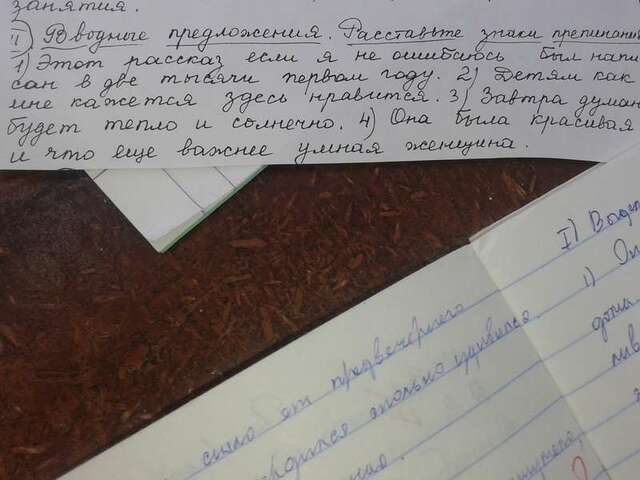 занятия.
II) Вводные предложения. Расставьте знаки препинани
1) Этот рассказ если я не ошибаюсь был напи
сан в две тысячи первом году. 2) Детям как
мне кажется здесь нравится. 3) Завтра думаю
будет тепло и солнечно. 4) Она была красивая
и что еще важнее умная женщина.
I)
1) Он
было от предвечернего
столько